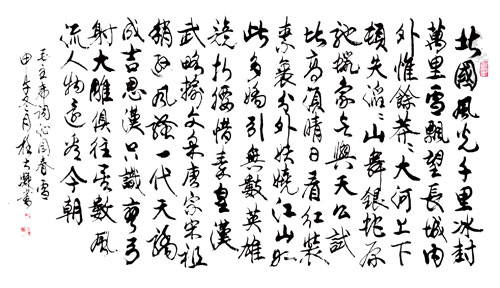 北國風光千里冰封
萬里雪飄望長城內
外惟餘莽々大河上下
頓失滔々山舞銀蛇原
馳蠟象欲與天公試
比高須晴日看紅裝
素裹分外妖嬈江山如
此多嬌引無數英雄
競折腰惜秦皇漢
武略輸文采唐宗宋祖
稍遜風騷一代天驕
成吉思漢只識彎弓
射大雕俱往矣數風
流人物還看今朝
毛主席詞沁園春雪
冬月